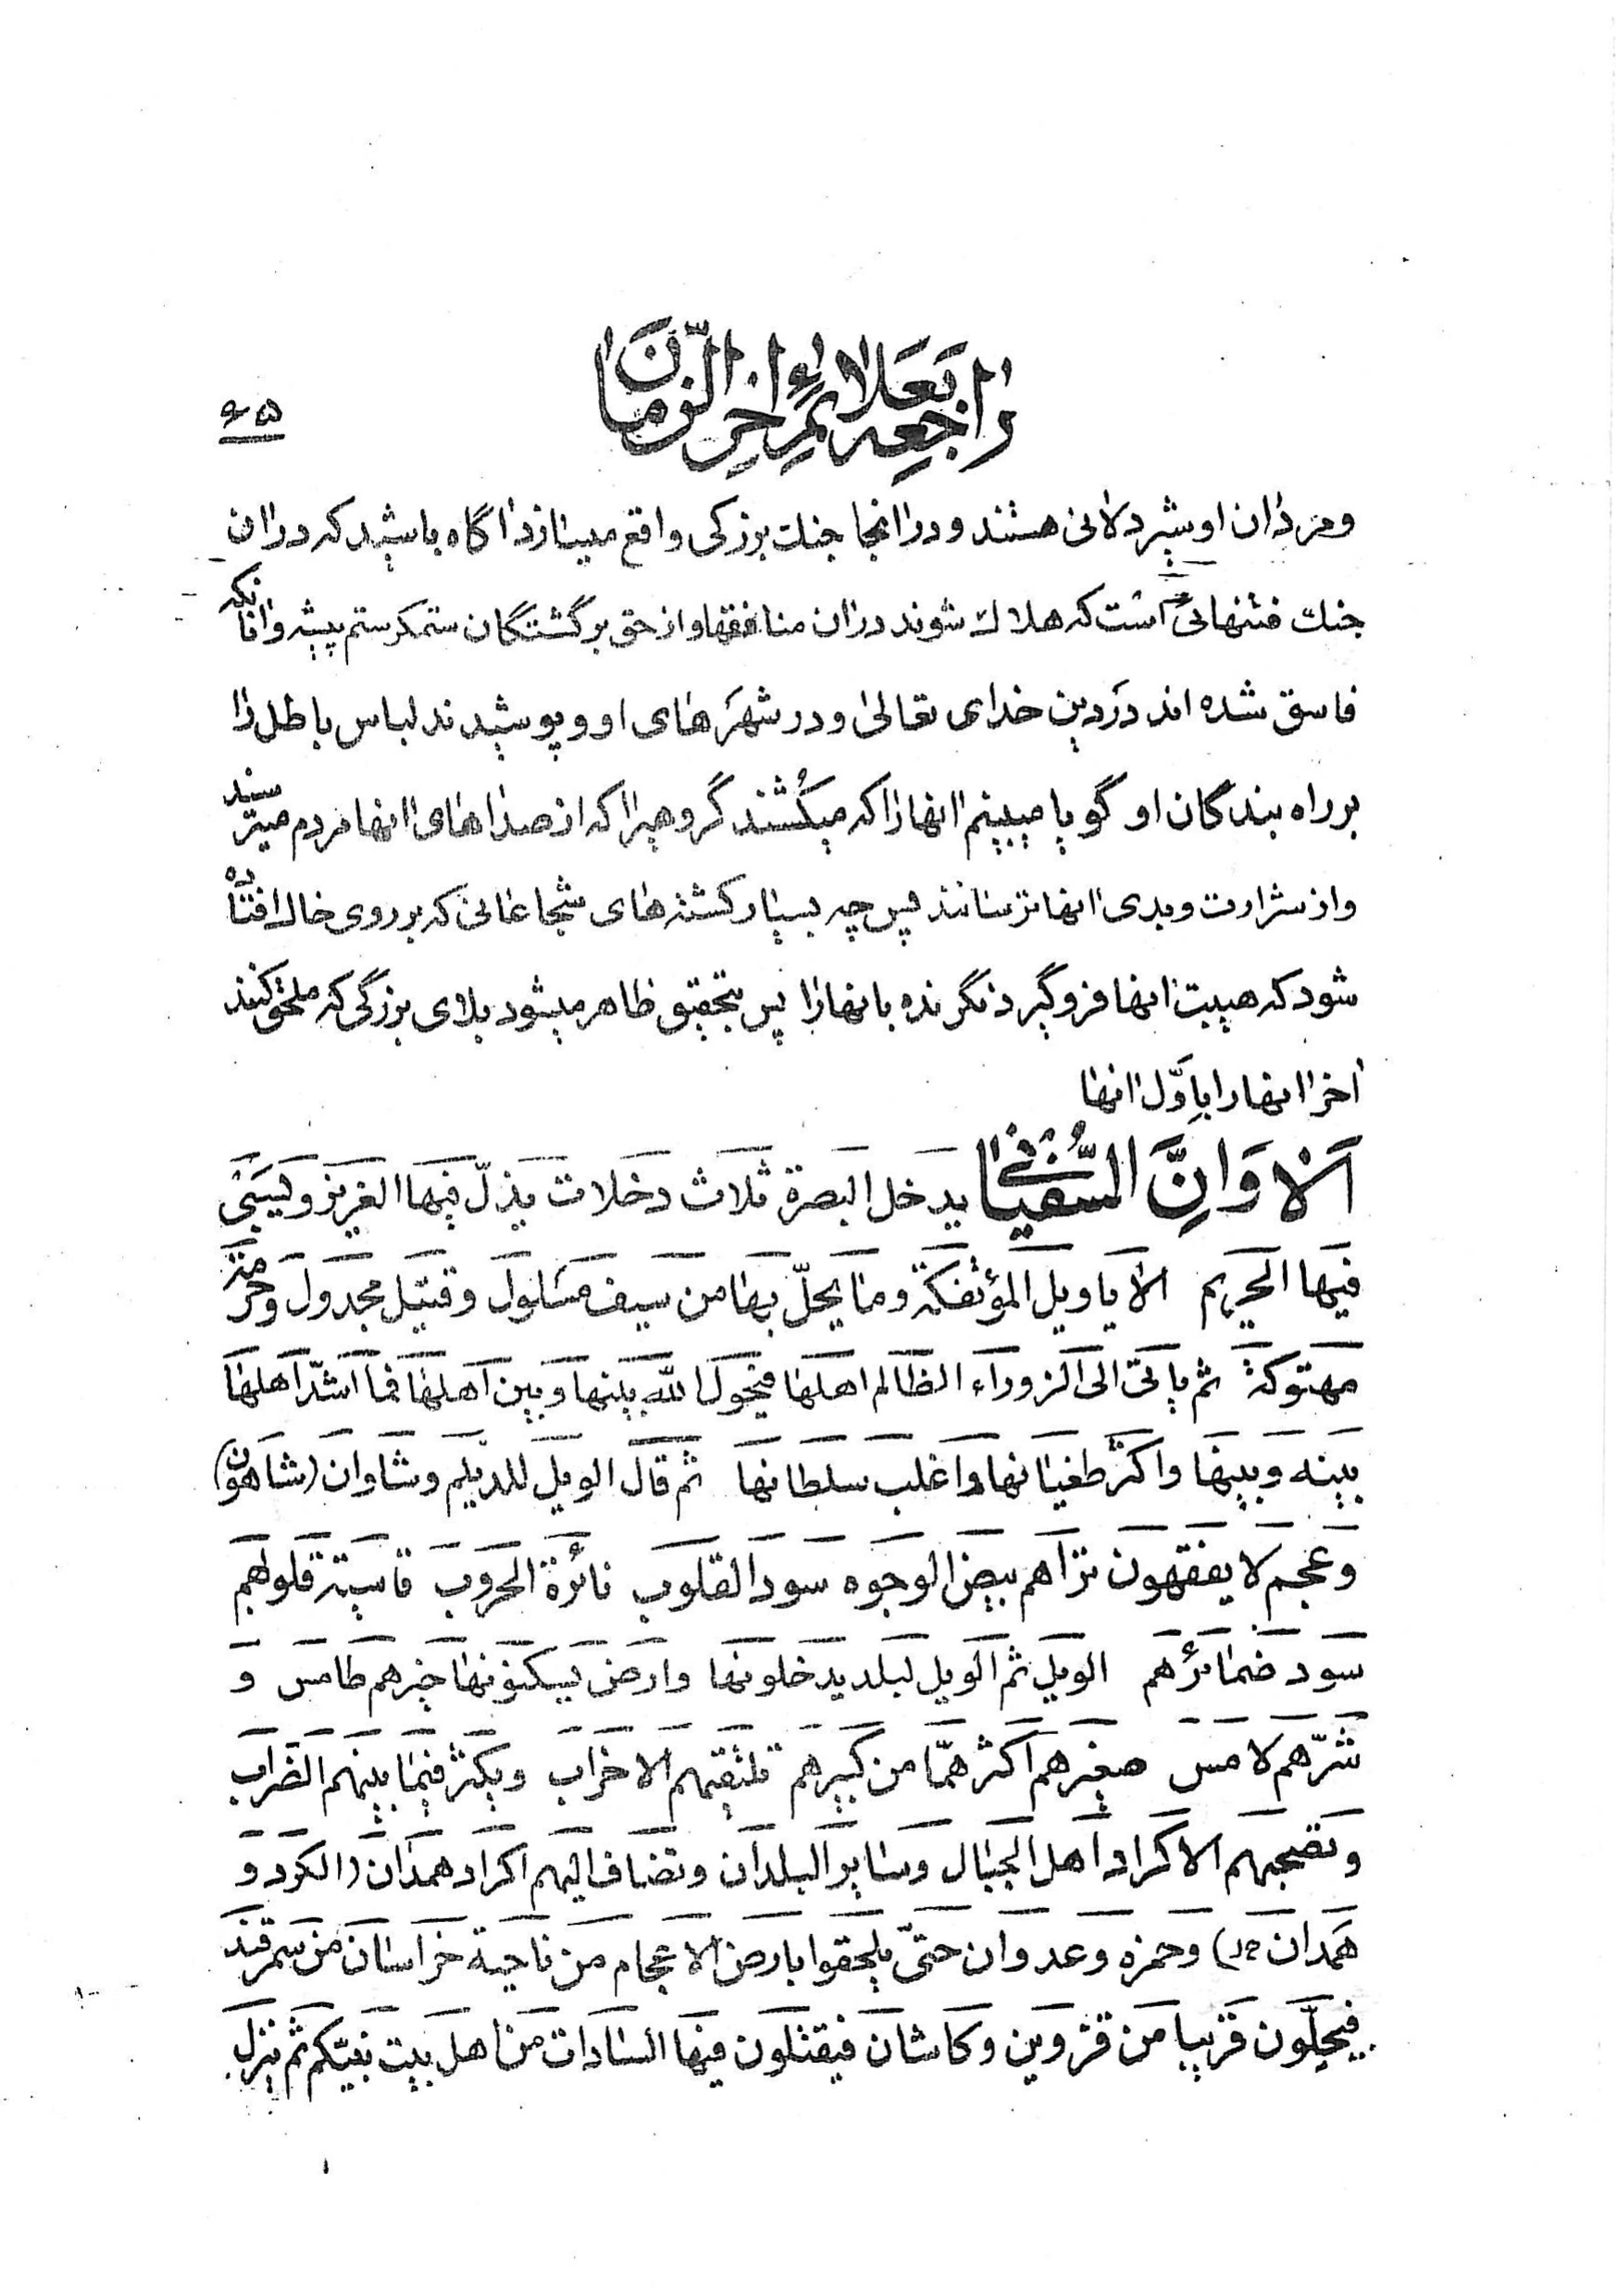 راجعه بعلائم اخر الزمان
۶۵
و مردان او شیر دلانی هستند و در آنجا جنك بزرکی واقع میسازد اگاه باشید که در ان
جنك فتنهائی است که هلاك شوند در ان منافقها و از حق برگشتگان ستمکر ستم پیشه و انانکه
فاسق شده اند در دین خدای تعالی و در شهرهای او و پوشیدند لباس باطل را
بر راه بندگان او گویا میبینم انها را که میکشند گروهیرا که از صداهای انها مردم میترسند
و از شرارت و بدی انها ترسانند پس چه بسیار کشته های شجاعانی که بر روی خاك افتاده
شود که هیبت انها فرو گیرد نگرنده بانها را پس بتحقیق ظاهر میشود بلای بزرگی که ملحق کنند
اخر انها را باوّل انها
اَلا وَ اِنَّ السُّفیانی یدخل البصرة ثلاث دخلات یذلّ فیها العزیز و یسبی
فیها الحریم الا یا ویل المؤتفکة و ما یحلّ بها من سیف مسلول و قتیل مجدول و حرمة
مهتوکة ثم یاتی الی الزوراء الظالم اهلها فیحول الله بینها و بین اهلها فما اشدّ اهلها
بینه و بینها و اکثر طغیانها و اغلب سلطانها ثم قال الویل للدیلم و شاوان (شاهون)
و عجم لا یفقهون تراهم بیض الوجوه سود القلوب نائرة الحروب قاسیة قلوبهم
سود ضمائرهم الویل ثم الویل لبلد یدخلونها و ارض یسکنونها خیرهم طامس و
شرّهم لامس صغیرهم اکثر همّا من کبیرهم تلتقیهم الاخراب و یکثر فیما بینهم الضراب
و تصحبهم الاکراد اهل الجبال و سایر البلدان و تضاف الیهم اکراد همدان (الکرد و
همدان خ‌ل) و حمزه و عدوان حتّی یلحقوا بارض الاعجام من ناحیة خراسان من سمرقند
فیحلّون قریبا من قزوین و کاشان فیقتلون فیها السادات من اهل بیت نبیّکم ثم ینزل